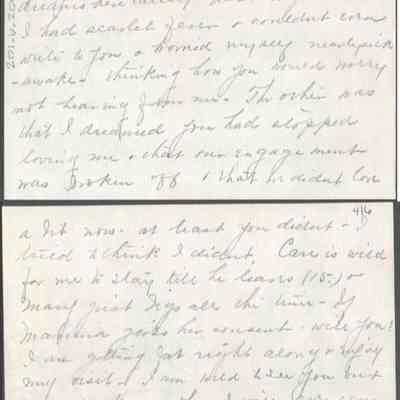 I had scarlet fever & couldnt even
write to you & worried myself nearly sick
awake - thinking how you would worry
not hearing from me. The other was
that I dreamed you had stopped
loving me & that our engagement
was Broken off & that we didnt love
4/6
a bit now - at least you didnt - I
tried to think I didnt. Care is wild
for me to stay till he leaves (15.) &
Mary just begs all the time - If
Mamma gives her consent - will you?
I am getting fat right along & enjoy
my visit - I am wild to see you but